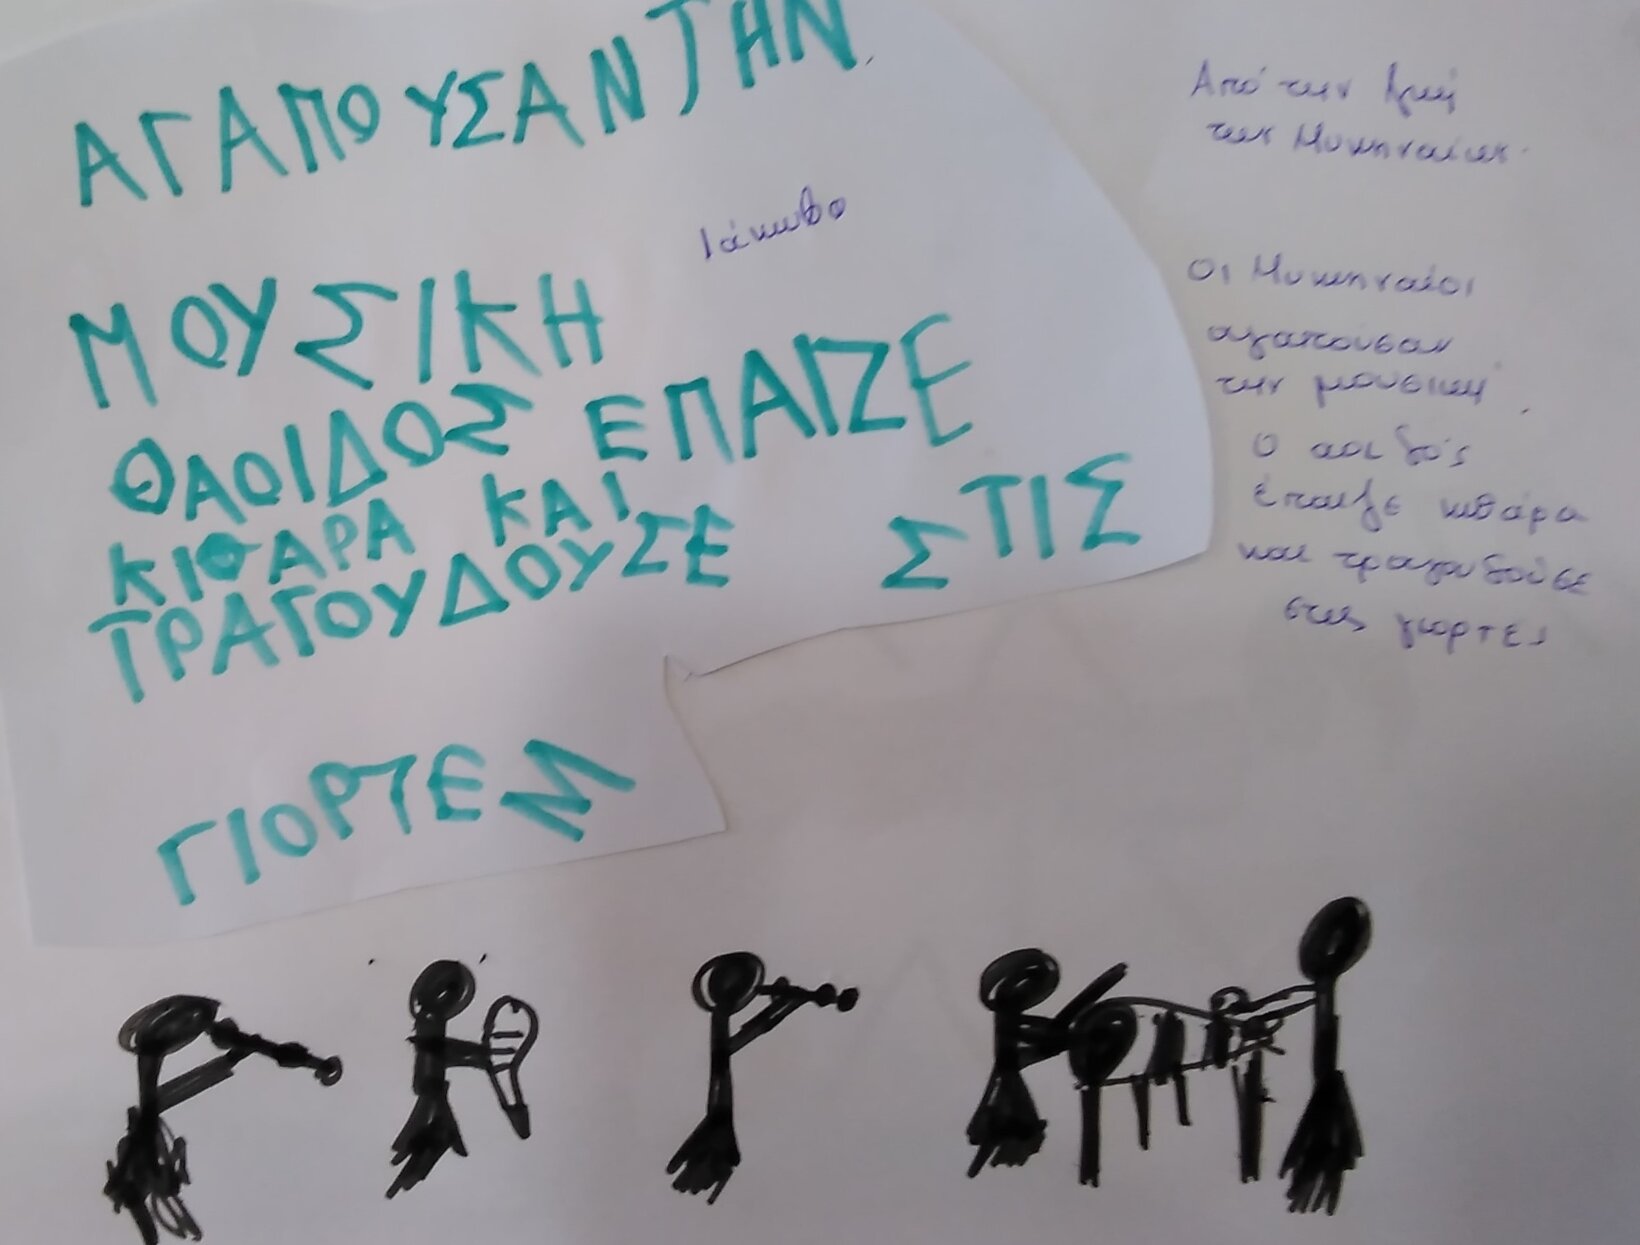 ΑΓΑΠΟΥΣΑΝ ΤΗΝ
Ιάκωβο
ΜΟΥΣΙΚΗ
Ο ΑΟΙΔΟΣ ΕΠΑΙΖΕ
ΚΙΘΑΡΑ ΚΑΙ
ΤΡΑΓΟΥΔΟΥΣΕ ΣΤΙΣ
ΓΙΟΡΤΕΣ
Από την
των Μυκηναίων.
Οι Μυκηναίοι
αγαπούσαν
την μουσική.
Ο αοιδός
έπαιζε κιθάρα
και τραγουδούσε
στις γιορτές